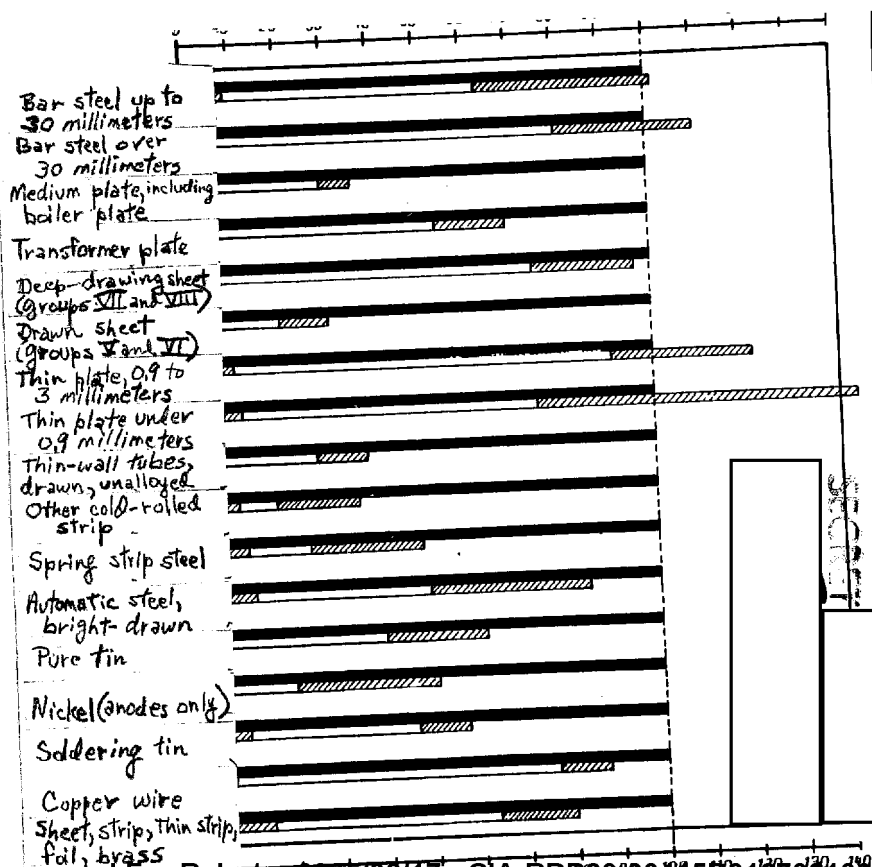 Bar steel up to
30 millimeters
Bar steel over
30 millimeters
Medium plate, including
boiler plate
Transformer plate
Deep-drawing sheet
(groups VII and VIII)
Drawn sheet
(groups V and VI)
Thin plate, 0.9 to
3 millimeters
Thin plate under
0.9 millimeters
Thin-wall tubes,
drawn, unalloyed
Other cold-rolled
strip
Spring strip steel
Automatic steel,
bright-drawn
Pure tin
Nickel (anodes only)
Soldering tin
Copper wire
Sheet, strip, Thin strip,
foil, brass